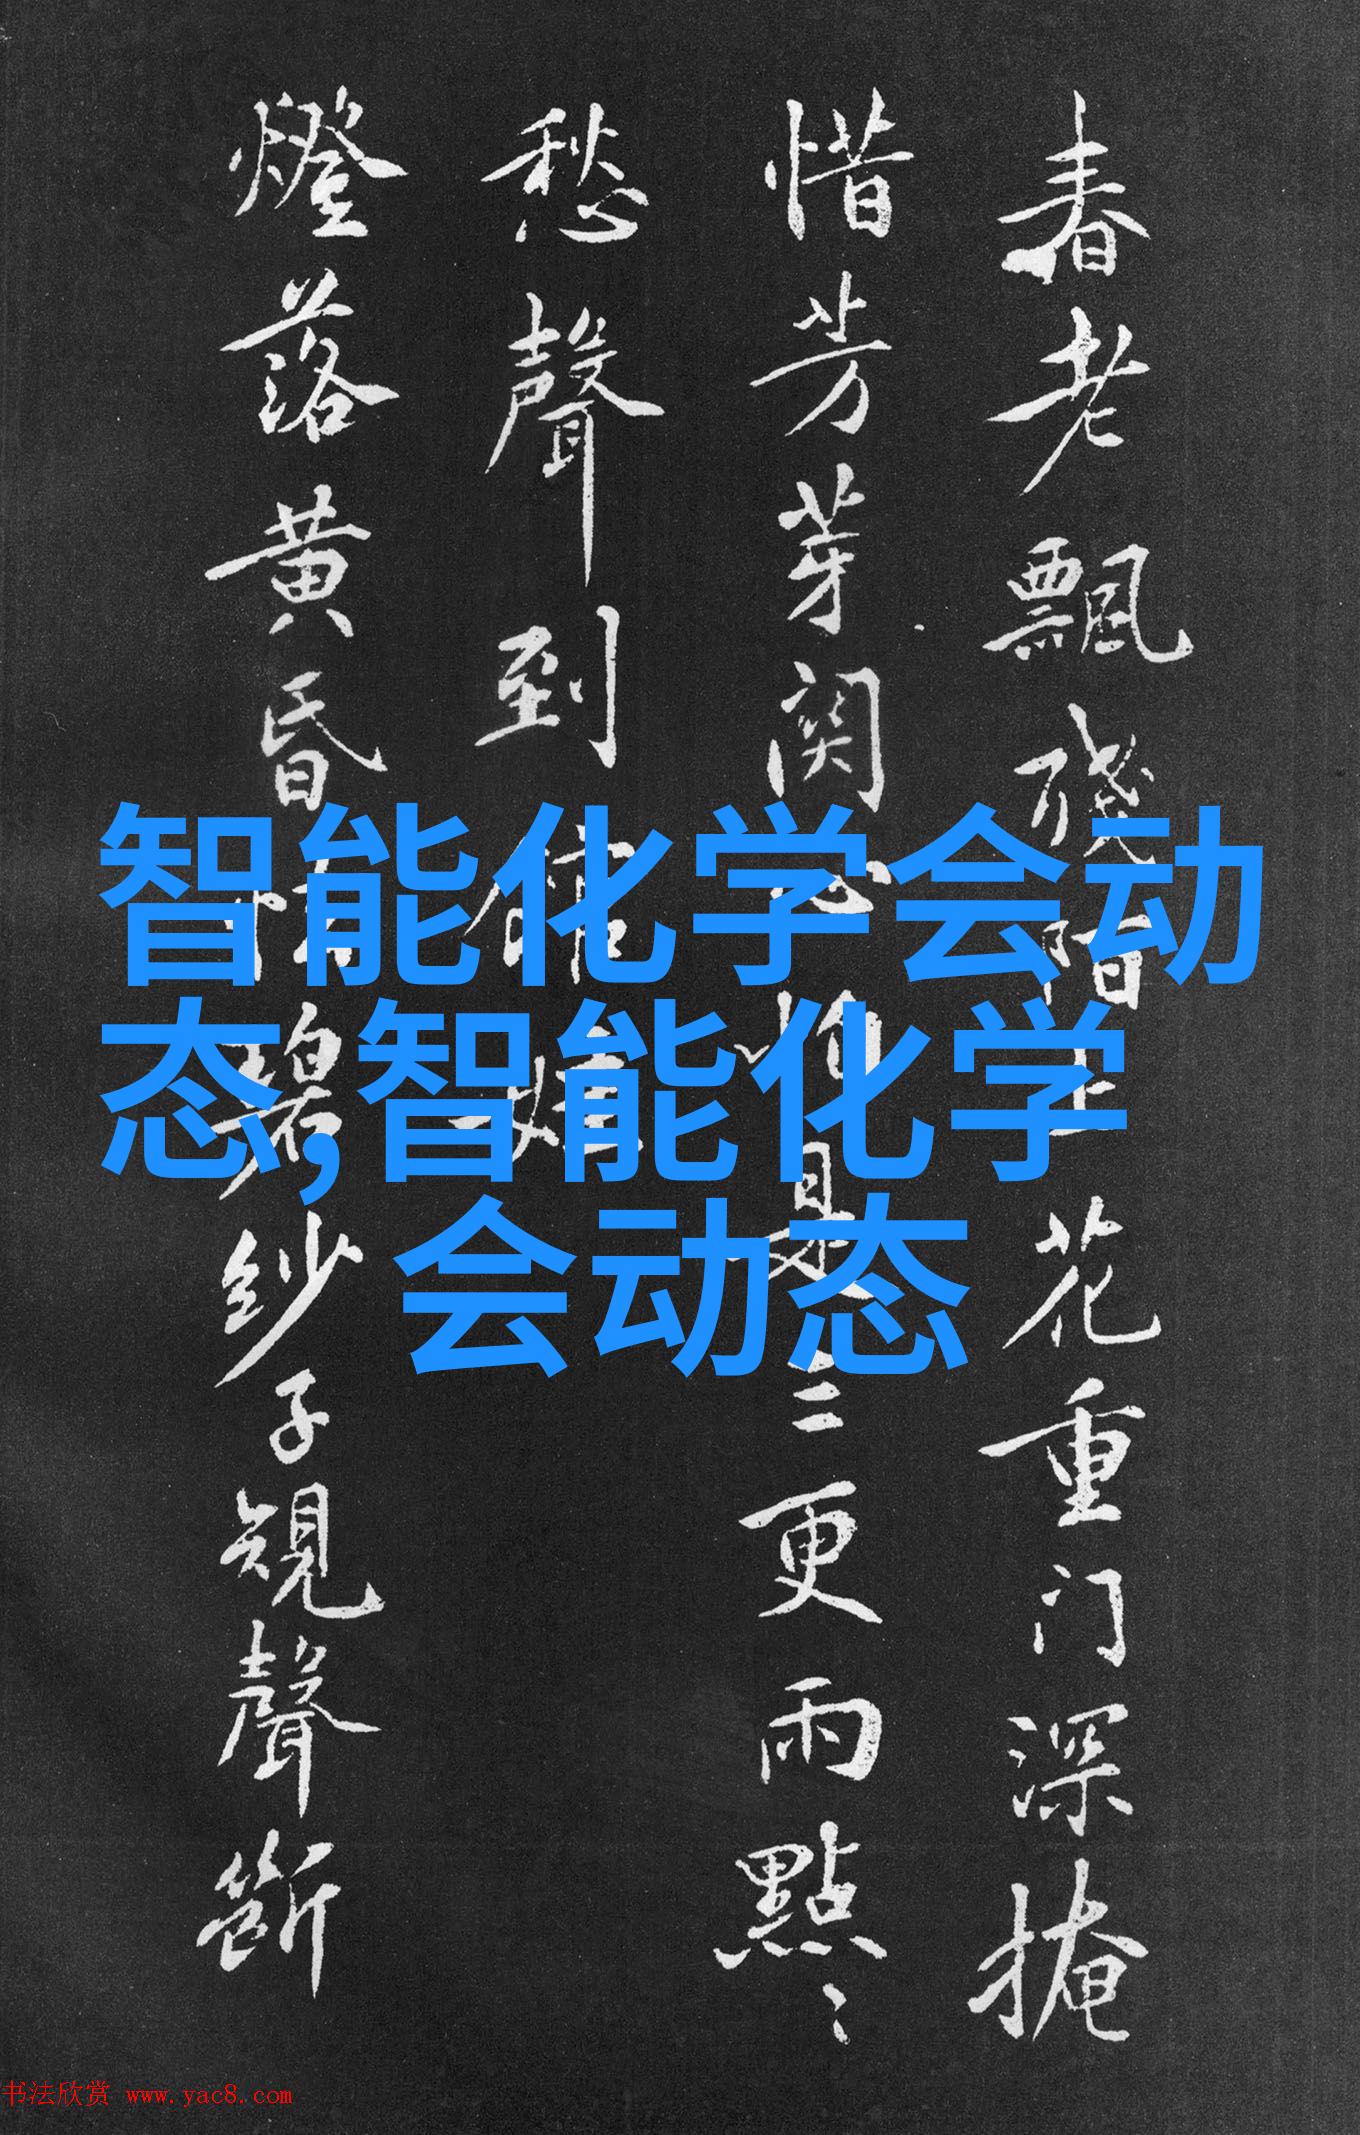 春老飄殘階上花重门深掩
惜芳芽関心怕是三更雨點〻
愁聲到
燈落黄昏
碧紗子規聲斷
智能化学会动
态,智能化学
会动态
书法欣赏 www.yac8.com